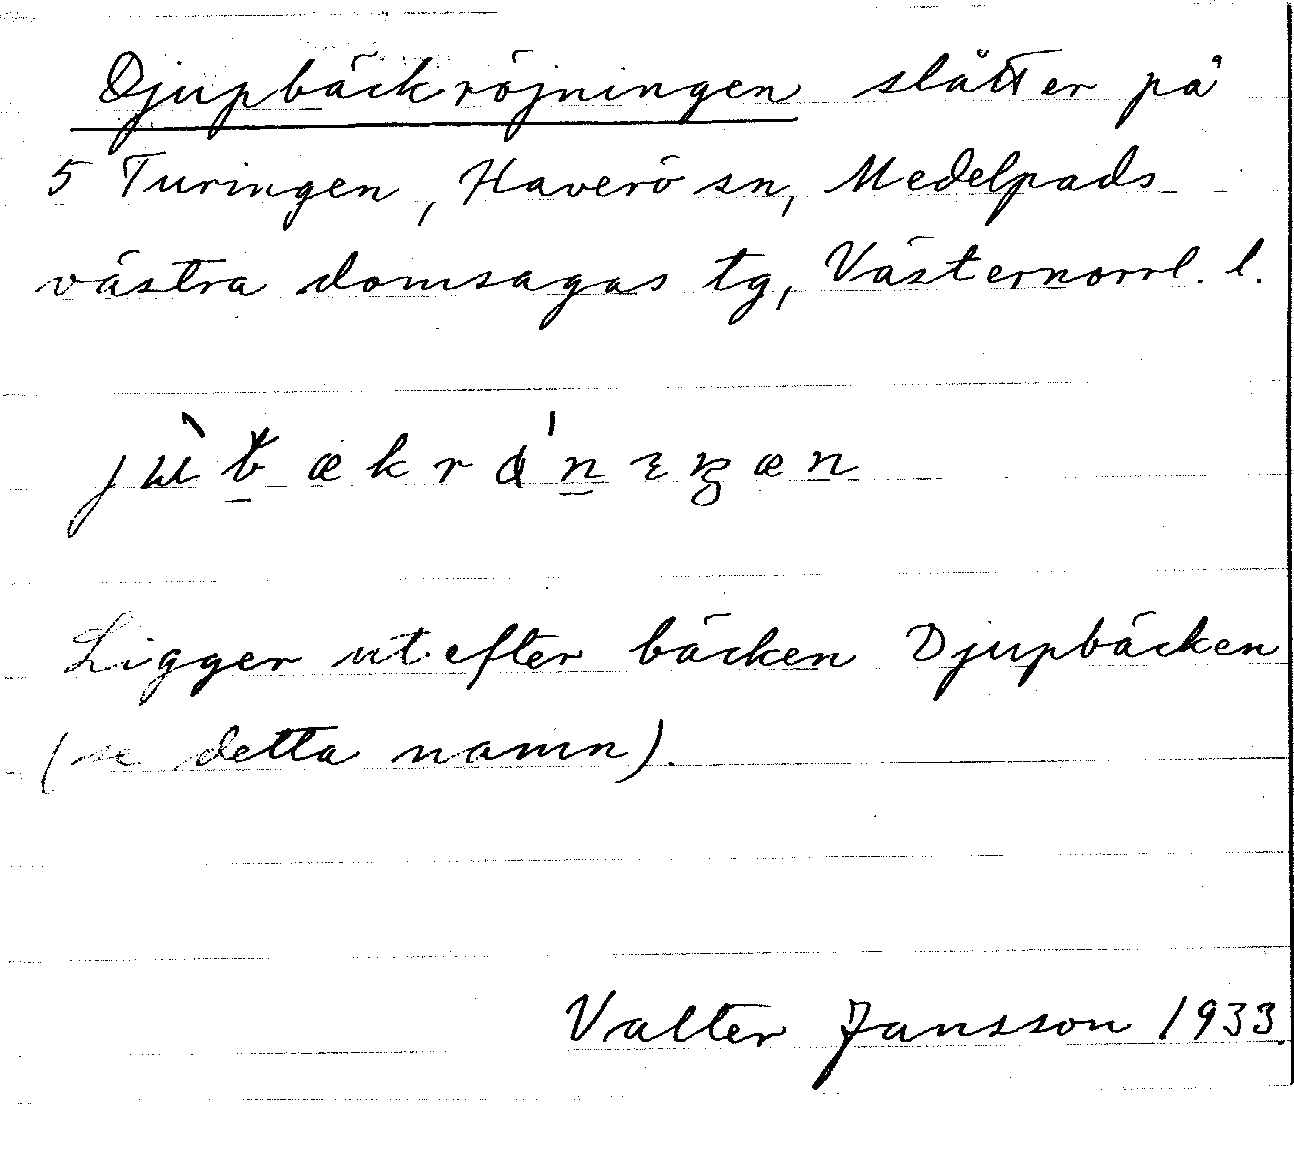 Djupbäckröjningen slåtter på
5 Turingen, Haverö sn, Medelpads
västra domsagas tg, Västernorrl. l.
Ligger utefter bäcken Djupbäcken
(se detta namn).
Valter Jansson 1933.